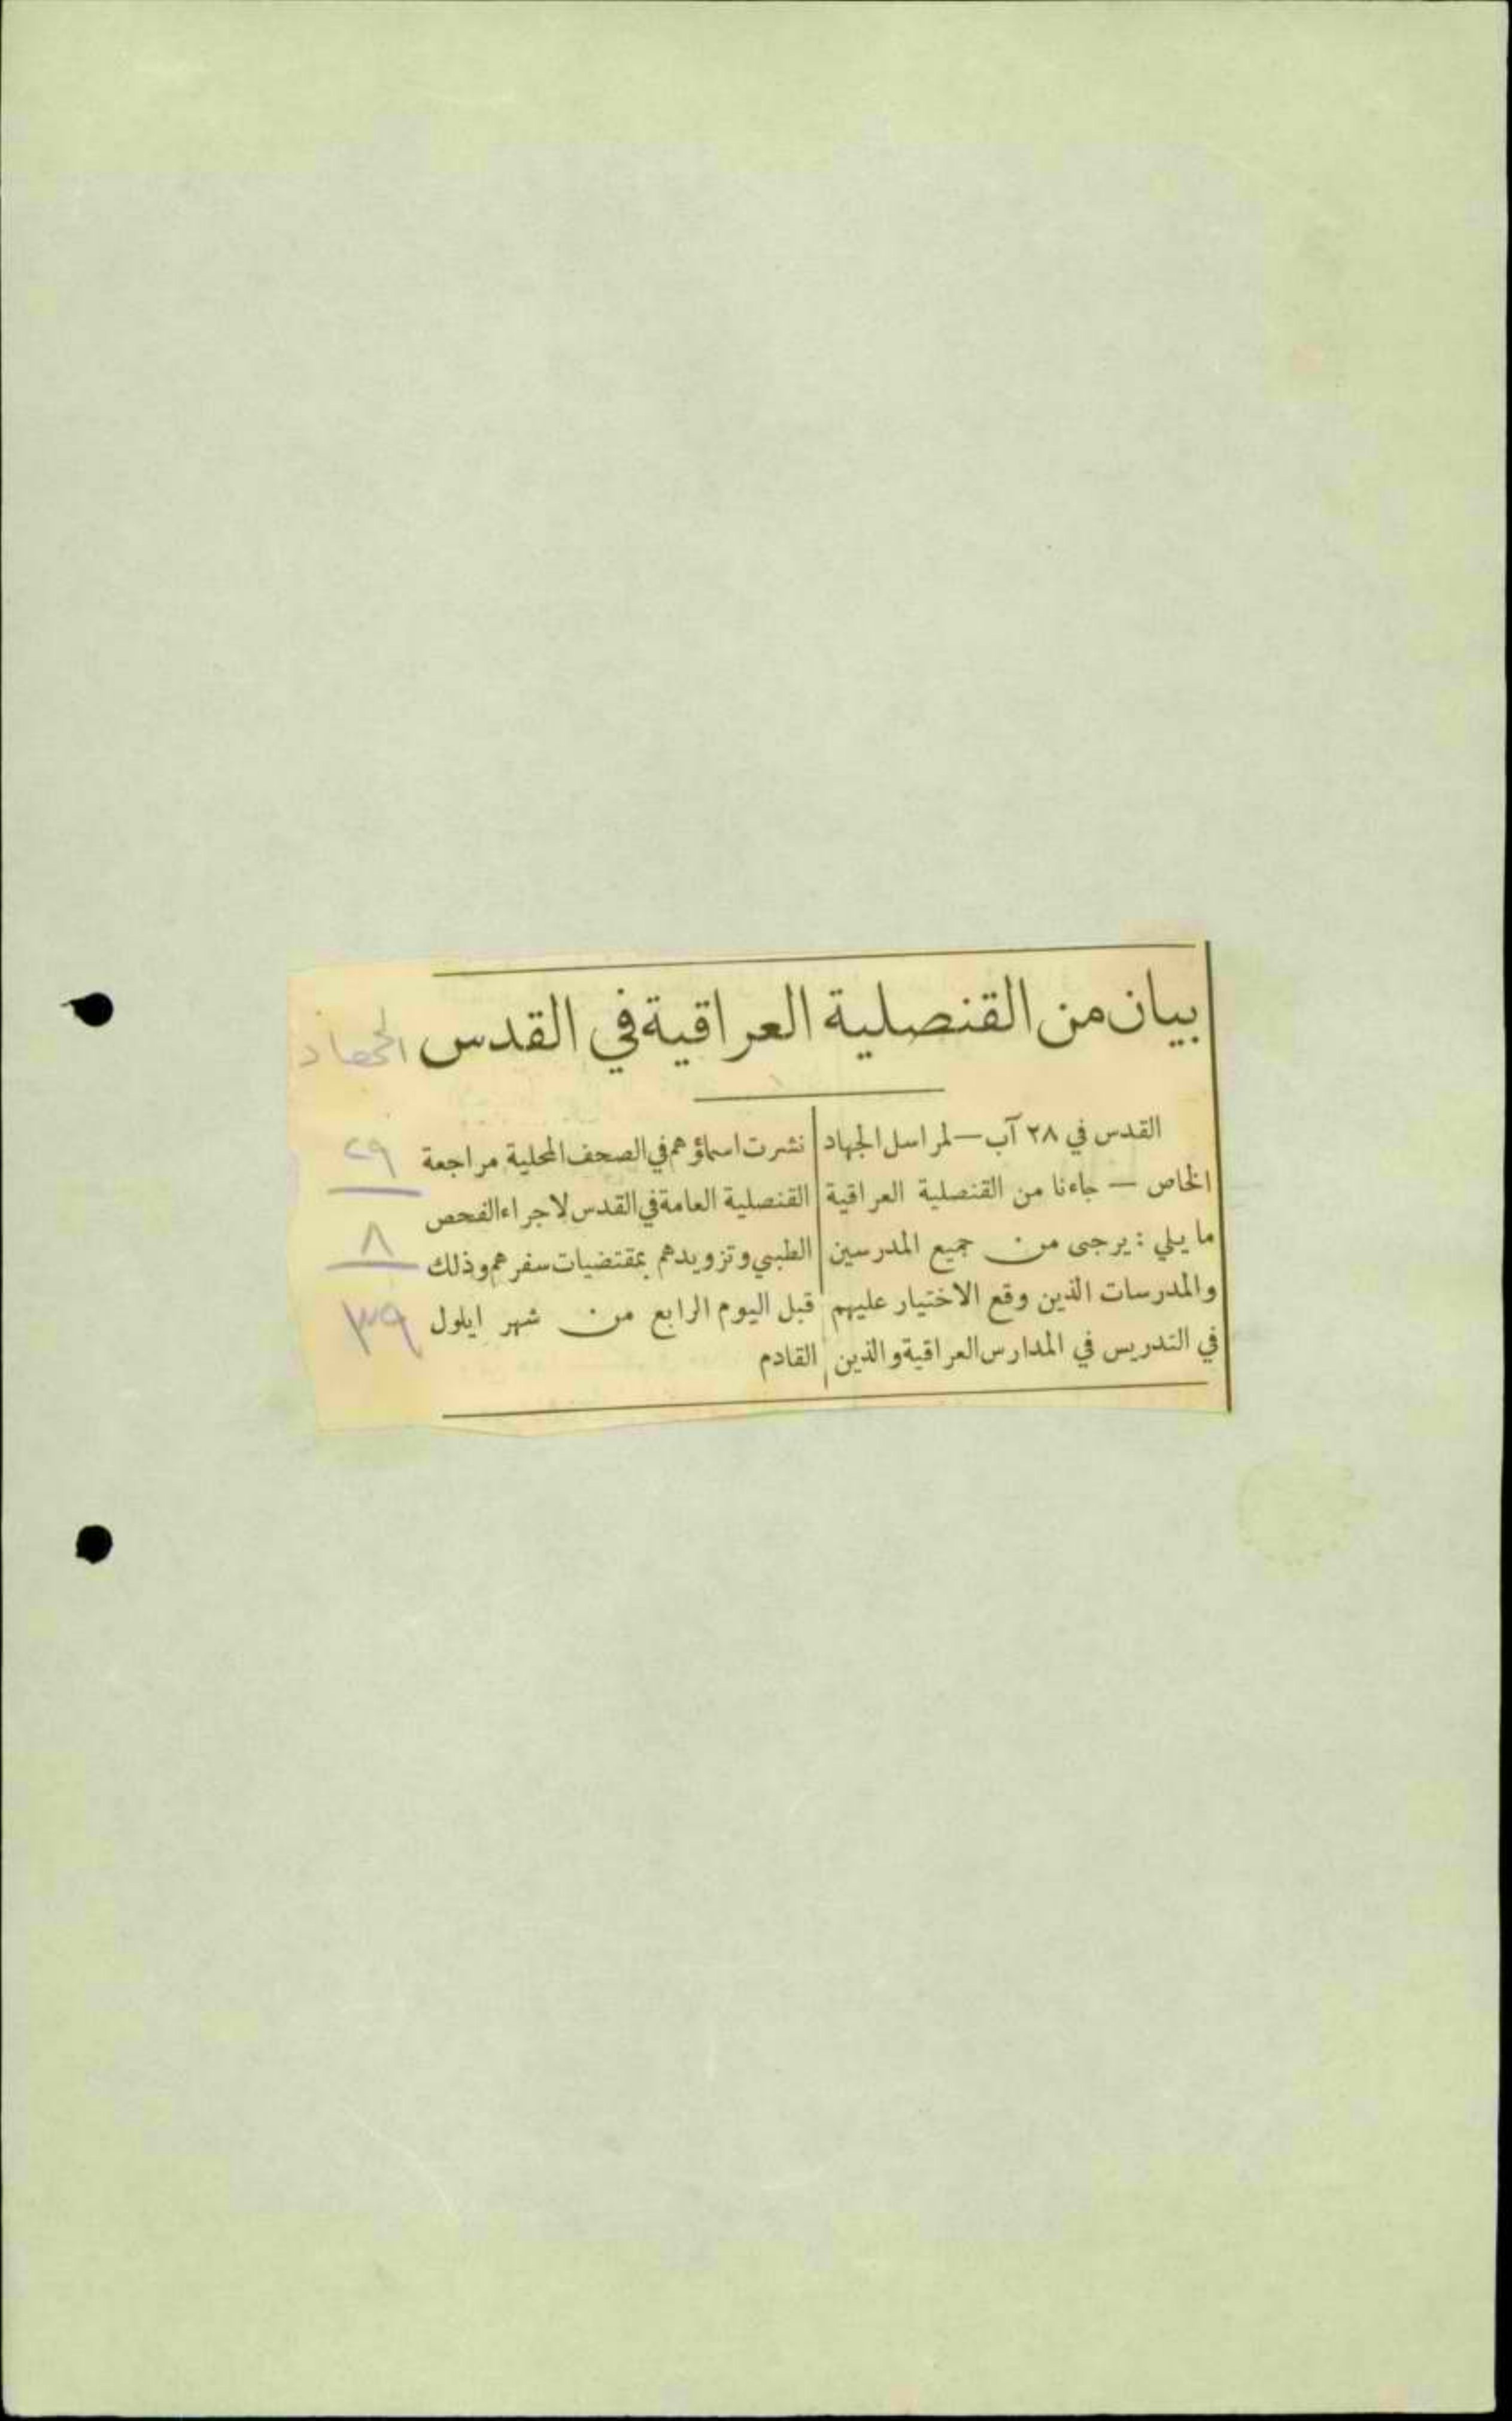 بيان من القنصلية العراقية في القدس
الجهاد
القدس في ٢٨ آب — لمراسل الجهاد
الخاص — جاءنا من القنصلية العراقية
ما يلي : يرجى من جميع المدرسين
والمدرسات الذين وقع الاختيار عليهم
في التدريس في المدارس العراقية والذين
نشرت اسماؤهم في الصحف المحلية مراجعة
القنصلية العامة في القدس لاجراء الفحص
الطبي وتزويدهم بمقتضيات سفرهم وذلك
قبل اليوم الرابع من شهر ايلول
القادم
٢٩
٨
٣٩